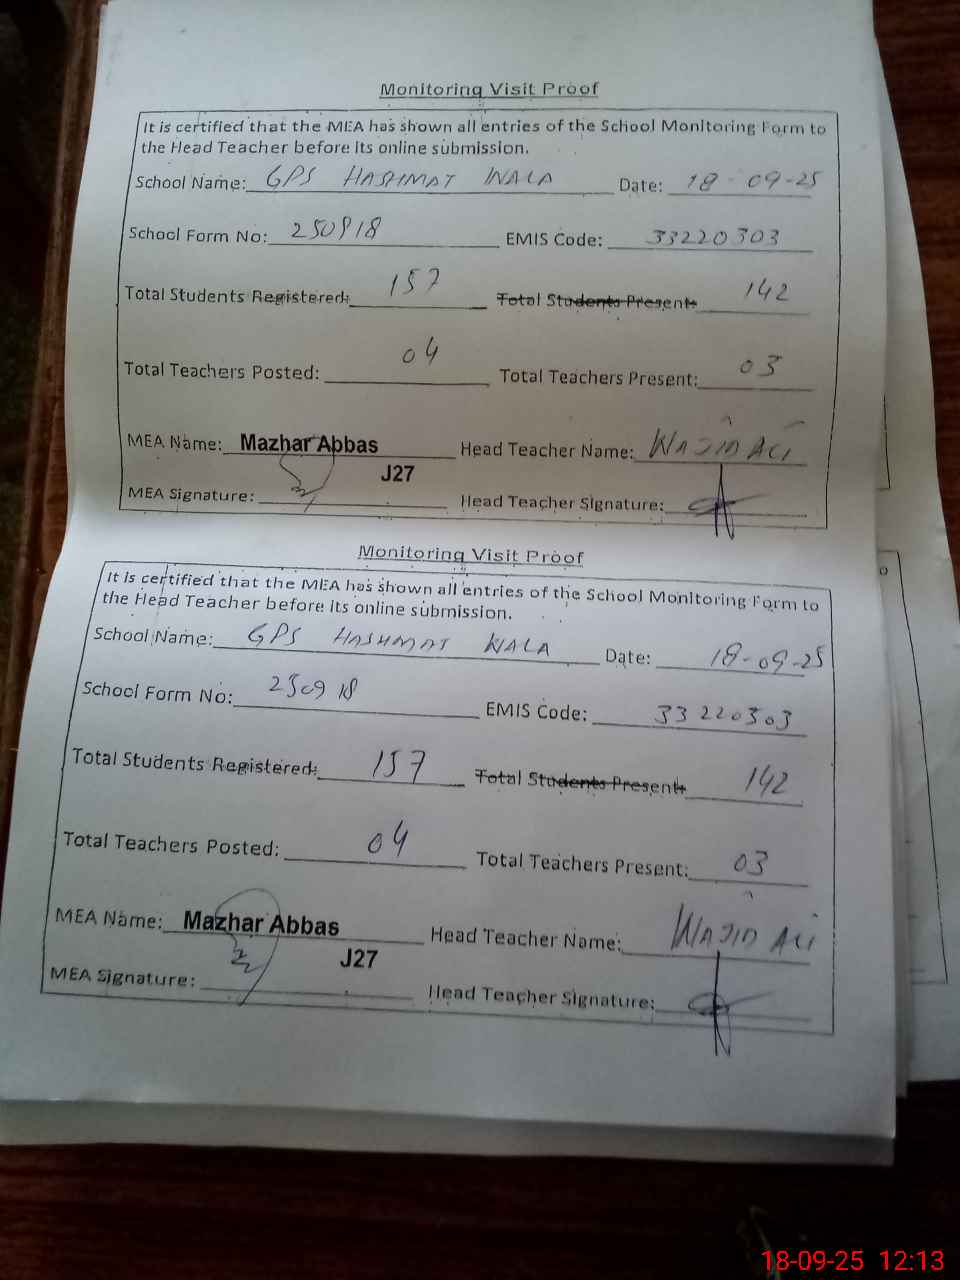 Monitoring Visit Proof
It is certified that the MEA has shown all entries of the School Monitoring Form to
the Head Teacher before its online submission.
School Name: GPS HASHMAT WALA Date: 18-09-25
School Form No: 250918 EMIS Code: 33220303
Total Students Registered: 157 Total Students Present: 142
Total Teachers Posted: 04 Total Teachers Present: 03
MEA Name: Mazhar Abbas Head Teacher Name: WAJID ALI
J27
MEA Signature: Head Teacher Signature:
Monitoring Visit Proof
It is certified that the MEA has shown all entries of the School Monitoring Form to
the Head Teacher before its online submission.
School Name: GPS HASHMAT WALA Date: 18-09-25
School Form No: 250918 EMIS Code: 33220303
Total Students Registered: 157 Total Students Present: 142
Total Teachers Posted: 04 Total Teachers Present: 03
MEA Name: Mazhar Abbas Head Teacher Name: WAJID ALI
J27
MEA Signature: Head Teacher Signature:
18-09-25 12:13